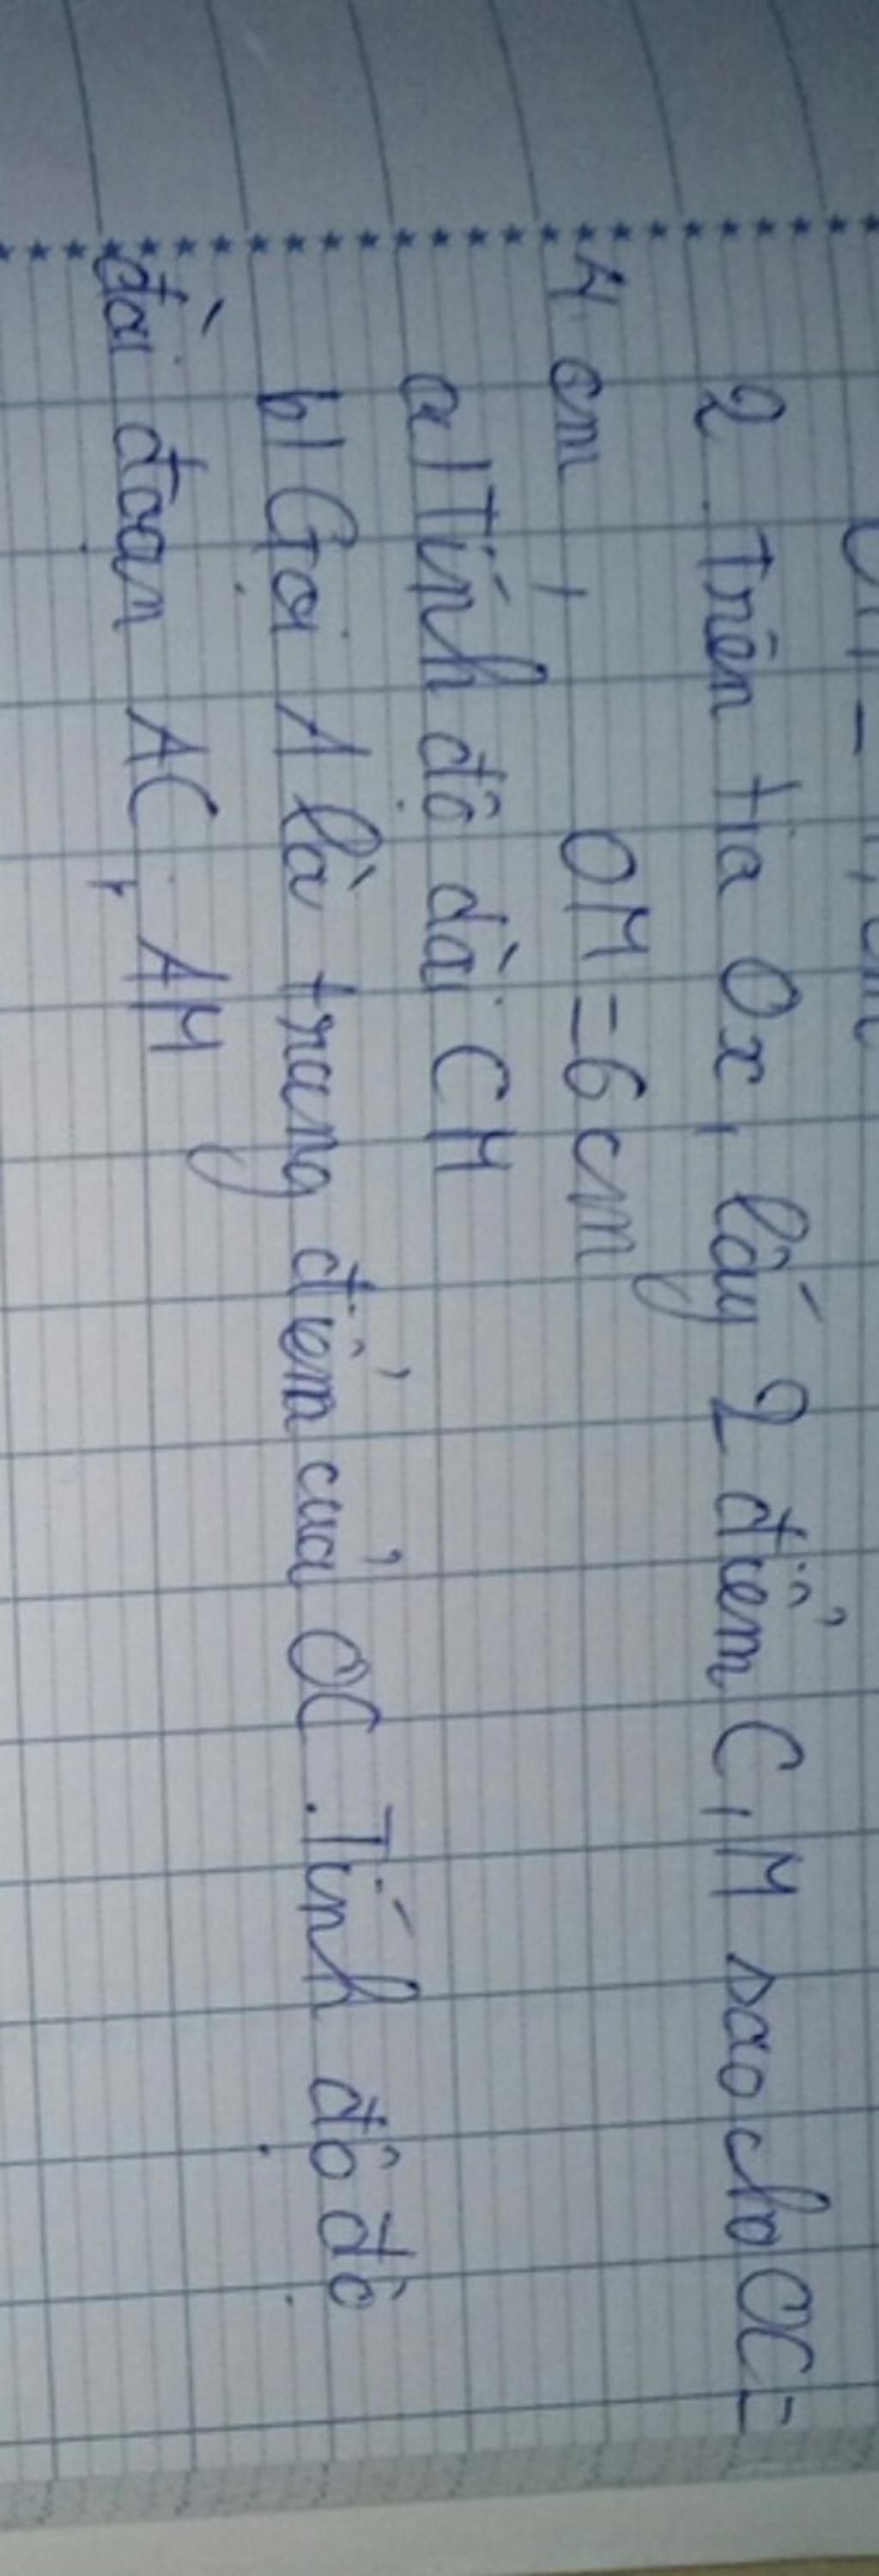 2. Trên tia Ox, lấy 2 điểm C, M sao cho OC =
4 cm, OM = 6 cm
a) Tính độ dài CM
b) Gọi A là trung điểm của OC. Tính độ độ
dài đoạn AC, AM